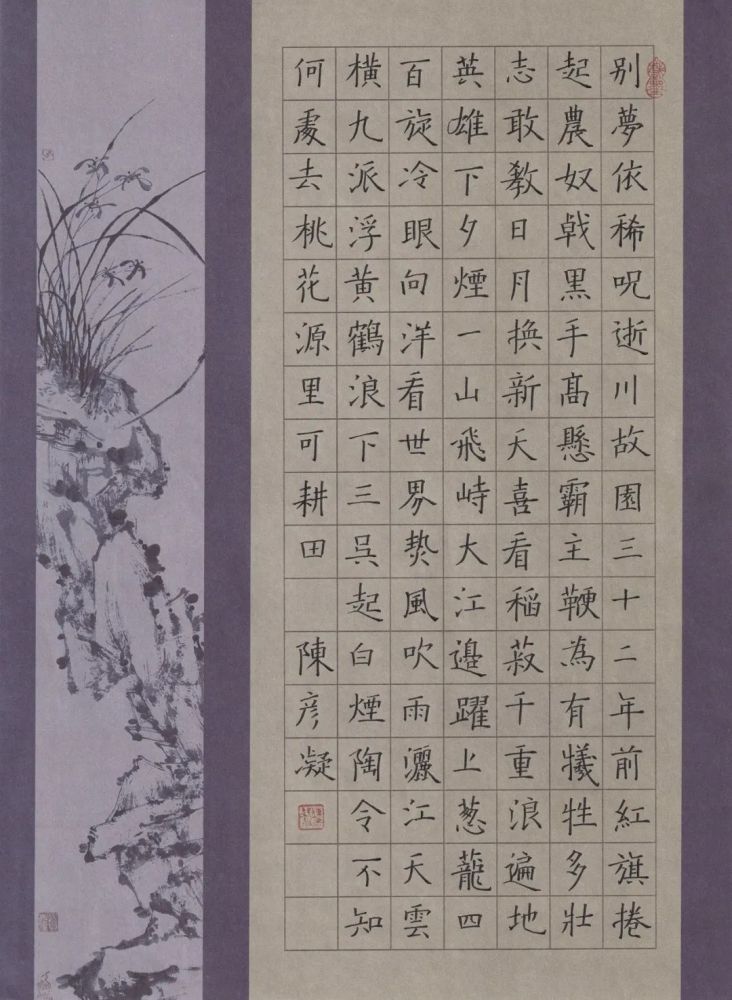 别夢依稀呪逝川故園三十二年前紅旗捲
起農奴戟黑手髙懸霸主鞭為有犧牲多壯
志敢教日月換新天喜看稻菽千重浪遍地
英雄下夕煙一山飛峙大江邊躍上葱蘢四
百旋冷眼向洋看世界熱風吹雨灑江天雲
橫九派浮黄鶴浪下三吳起白煙陶令不知
何處去桃花源里可耕田 陳彦凝